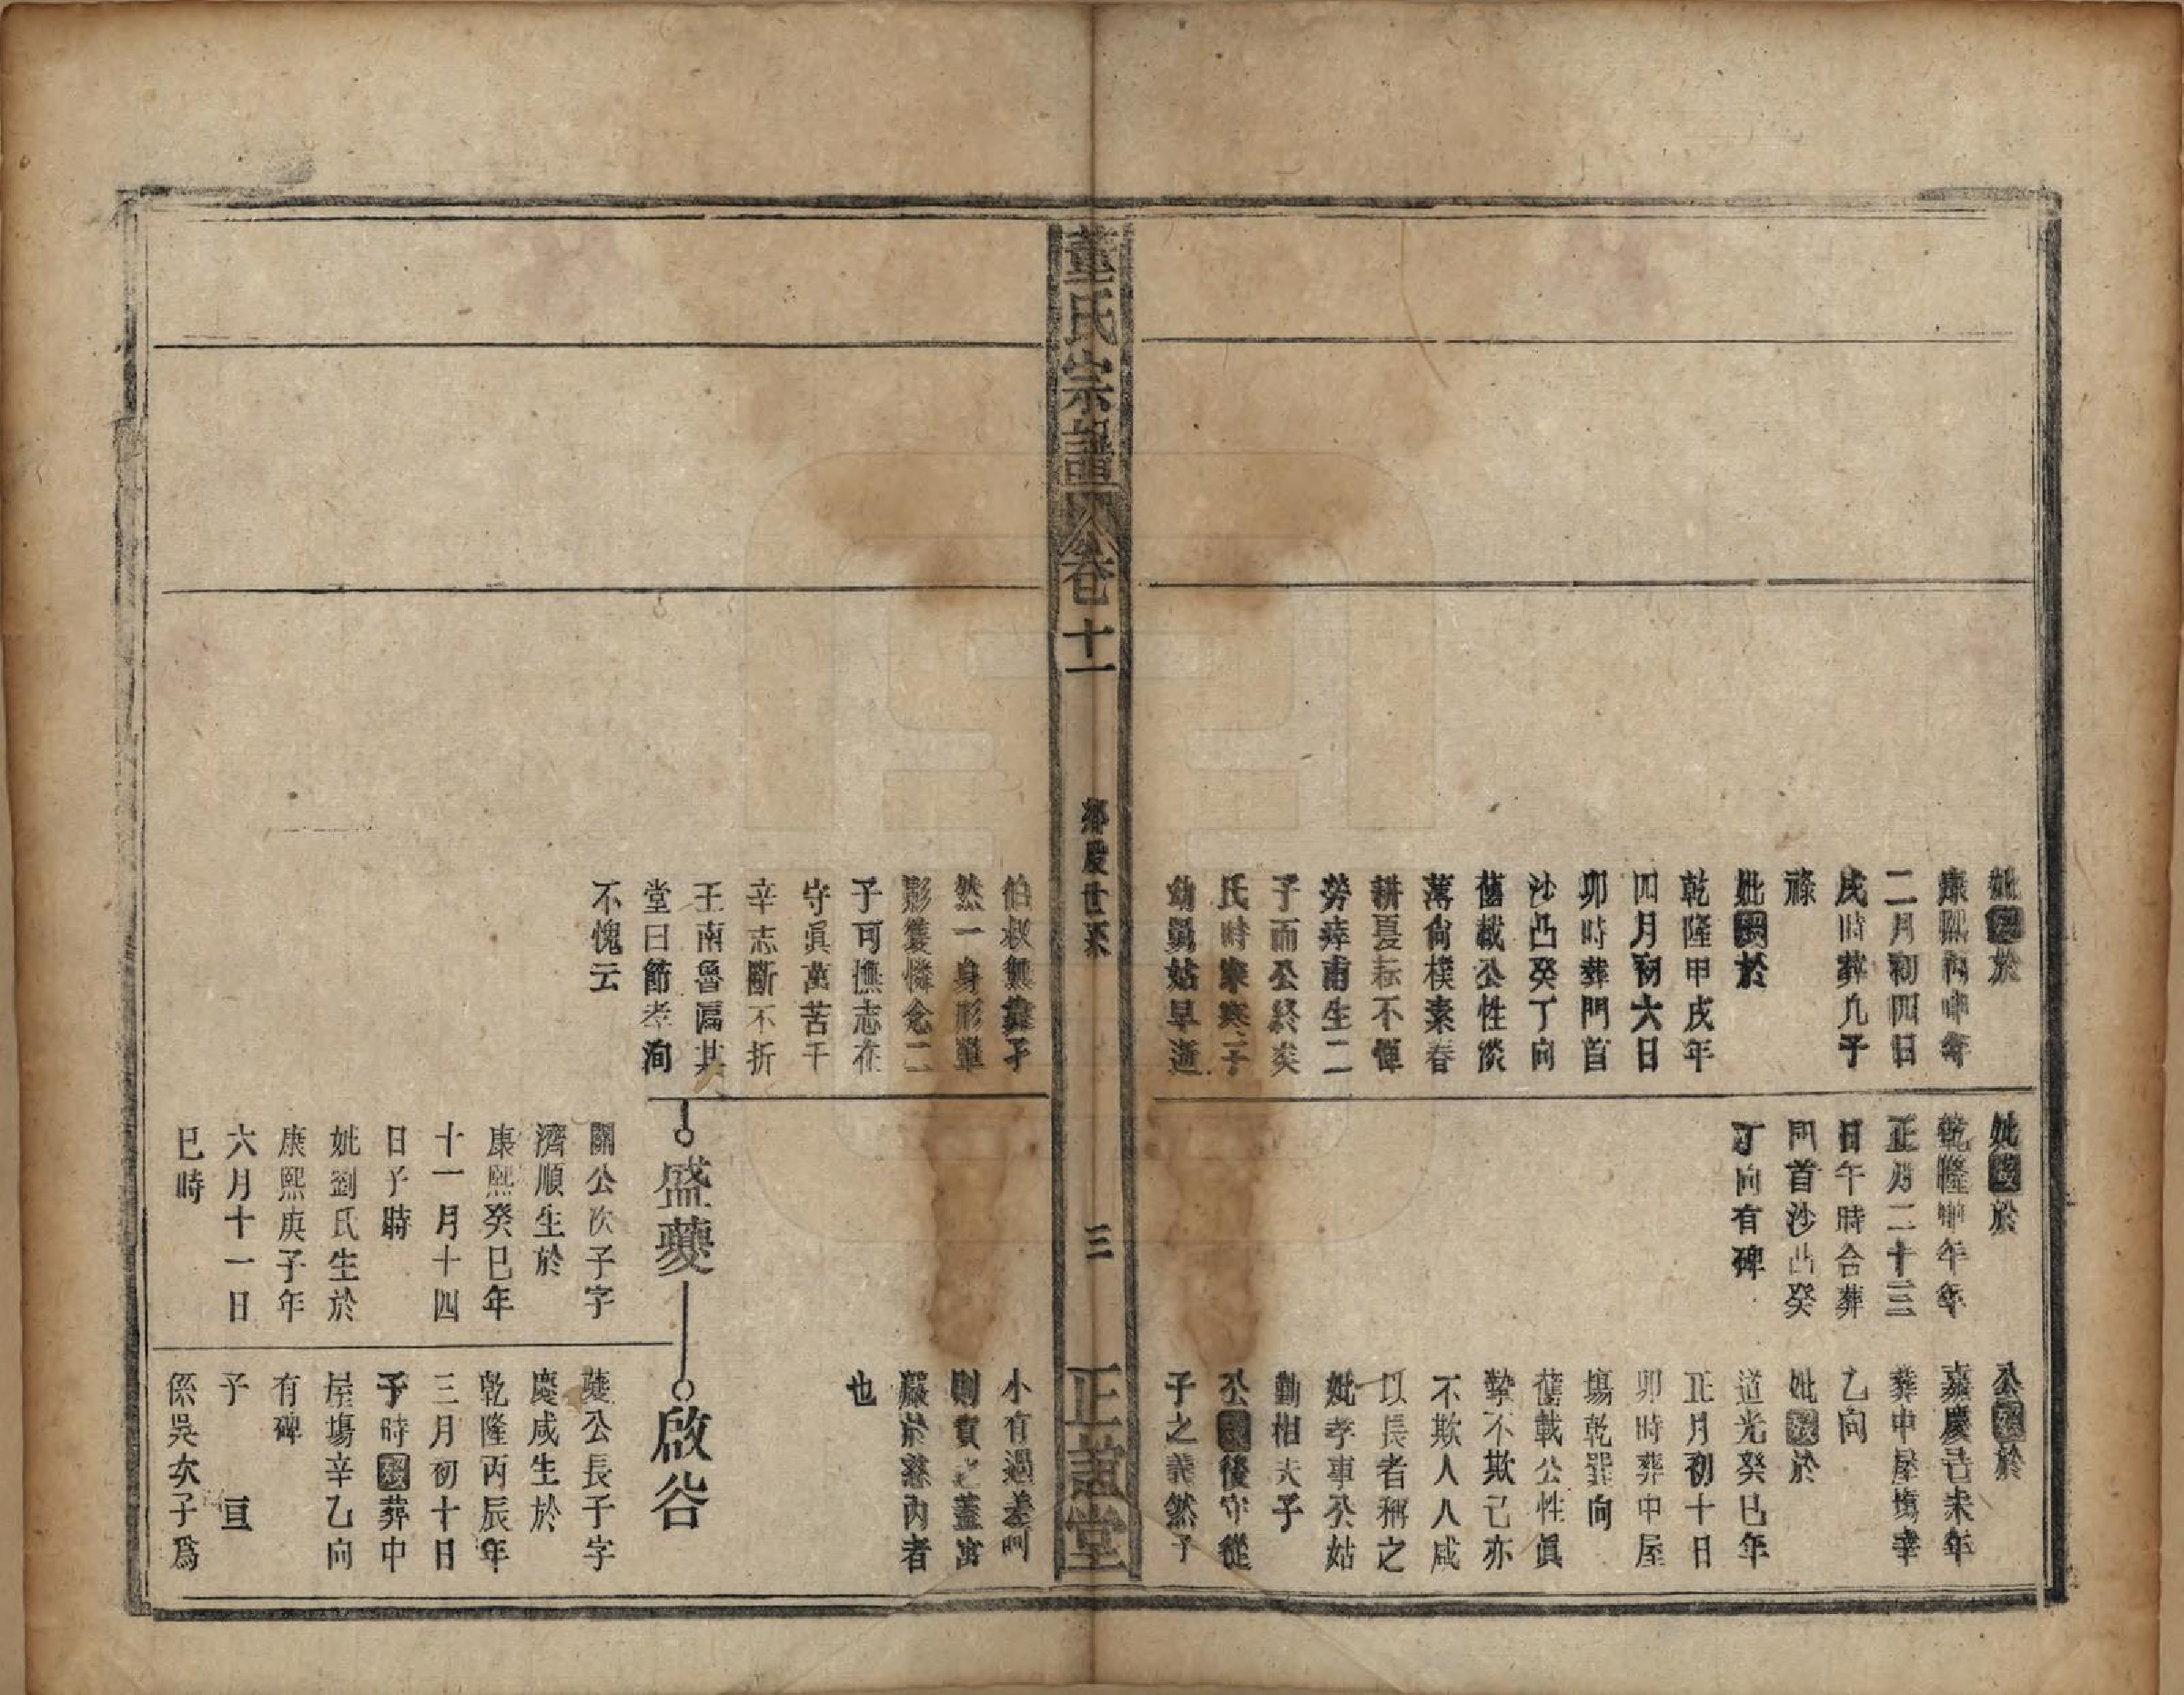 妣歿於
康熙丙申年
二月初四日
戌時葬凢子
祿
妣歿於
乾隆甲戌年
四月初六日
卯時葬門首
沙凸癸丁向
舊載公性淡
薄尙樸素春
耕夏耘不憚
勞瘁甫生二
子而公終矣
氏時家寒子
幼翁姑早逝
妣歿於
乾隆年
正月二十三
日午時合葬
門首沙凸癸
丁向有碑
公歿於
嘉慶己未年
葬中屋塲辛
乙向
妣歿於
道光癸巳年
正月初十日
卯時葬中屋
塲乾巽向
舊載公性眞
摯不欺己亦
不欺人人咸
以長者稱之
妣孝事公姑
勤相夫子
公歿後守從
子之義然子
董氏宗譜
卷十一
世系
三
正誼堂
伯叔無靠孑
然一身形單
影隻憐念二
子可憮志在
守眞萬苦千
辛志斷不折
王南魯匾其
堂曰節孝洵
不愧云
小有過差呵
則責之蓋寓
嚴於慈內者
也
盛夔
關公次子字
濟順生於
康熙癸巳年
十一月十四
日子時
妣劉氏生於
康熙庚子年
六月十一日
巳時
啟谷
夔公長子字
慶咸生於
乾隆丙辰年
三月初十日
子時歿葬中
屋塲辛乙向
有碑
子 亘
係吳次子爲